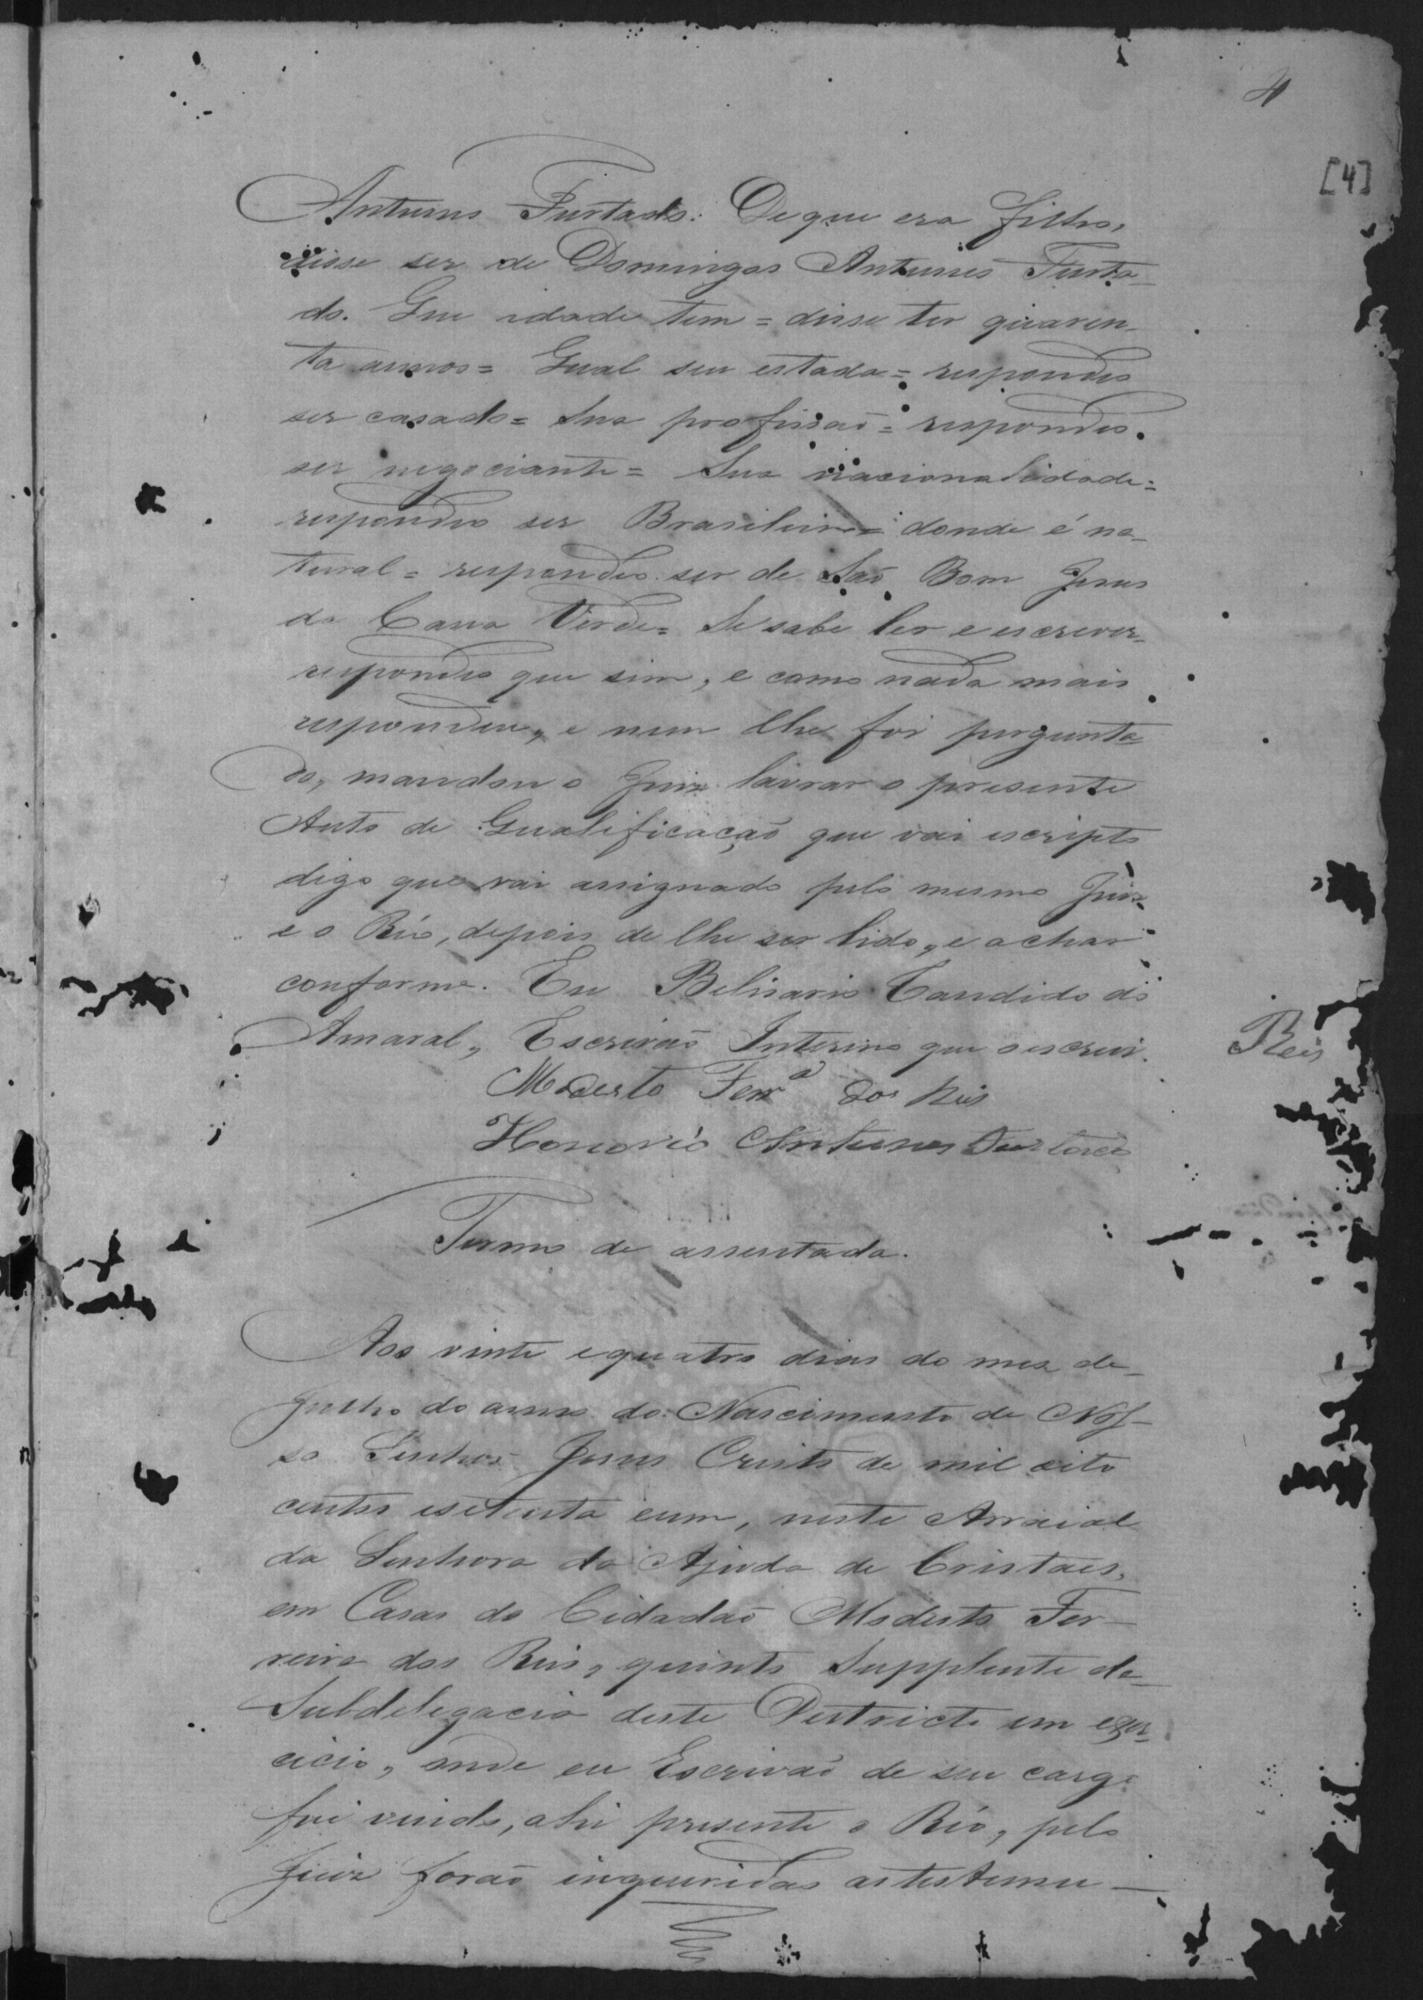 4
[4]
Antunes Furtado: De que era filho,
disse ser de Domingos Antunes Furta-
do. Que idade tem = disse ter quaren-
ta annos = Qual seu estado = respondeo
ser casado = Sua profissaõ = respondeo
ser negociante = Sua nacionalidade =
respondeo ser Brasileiro = donde é na-
tural = respondeo ser de Saõ Bom Jesus
da Canna Verde = Se sabe ler e escrever -
respondeo que sim, e como nada mais
respondeu, e nem lhe foi pergunta-
do, mandou o Juiz lavrar o presente
Auto de Qualificaçaõ que vai escripto
digo que vai assignado pelo mesmo Juiz
e o Réo, depois de lhe ser lido, e achar
conforme. Eu Belisario Candido do
Amaral, Escrivaõ Interino que o escrevi.
Reis
Modesto Ferrª dos Reis
Honorio Antunes Furtado
Termo de assentada.
Aos vinte e quatro dias do mez de
Julho do anno do Nascimento de Nos-
so Senhor Jesus Cristo de mil oito
centos e setenta e um, neste Arraial
da Senhora da Ajuda de Cristaes,
em Casas do Cidadaõ Modesto Fer-
reira dos Reis, quinto Supplente da
Subdelegacia deste Destricto em exer-
cicio, onde eu Escrivaõ de seu cargo
fui vindo, ahi presente o Réo, pelo
Juiz foraõ inqueridas as testemu-